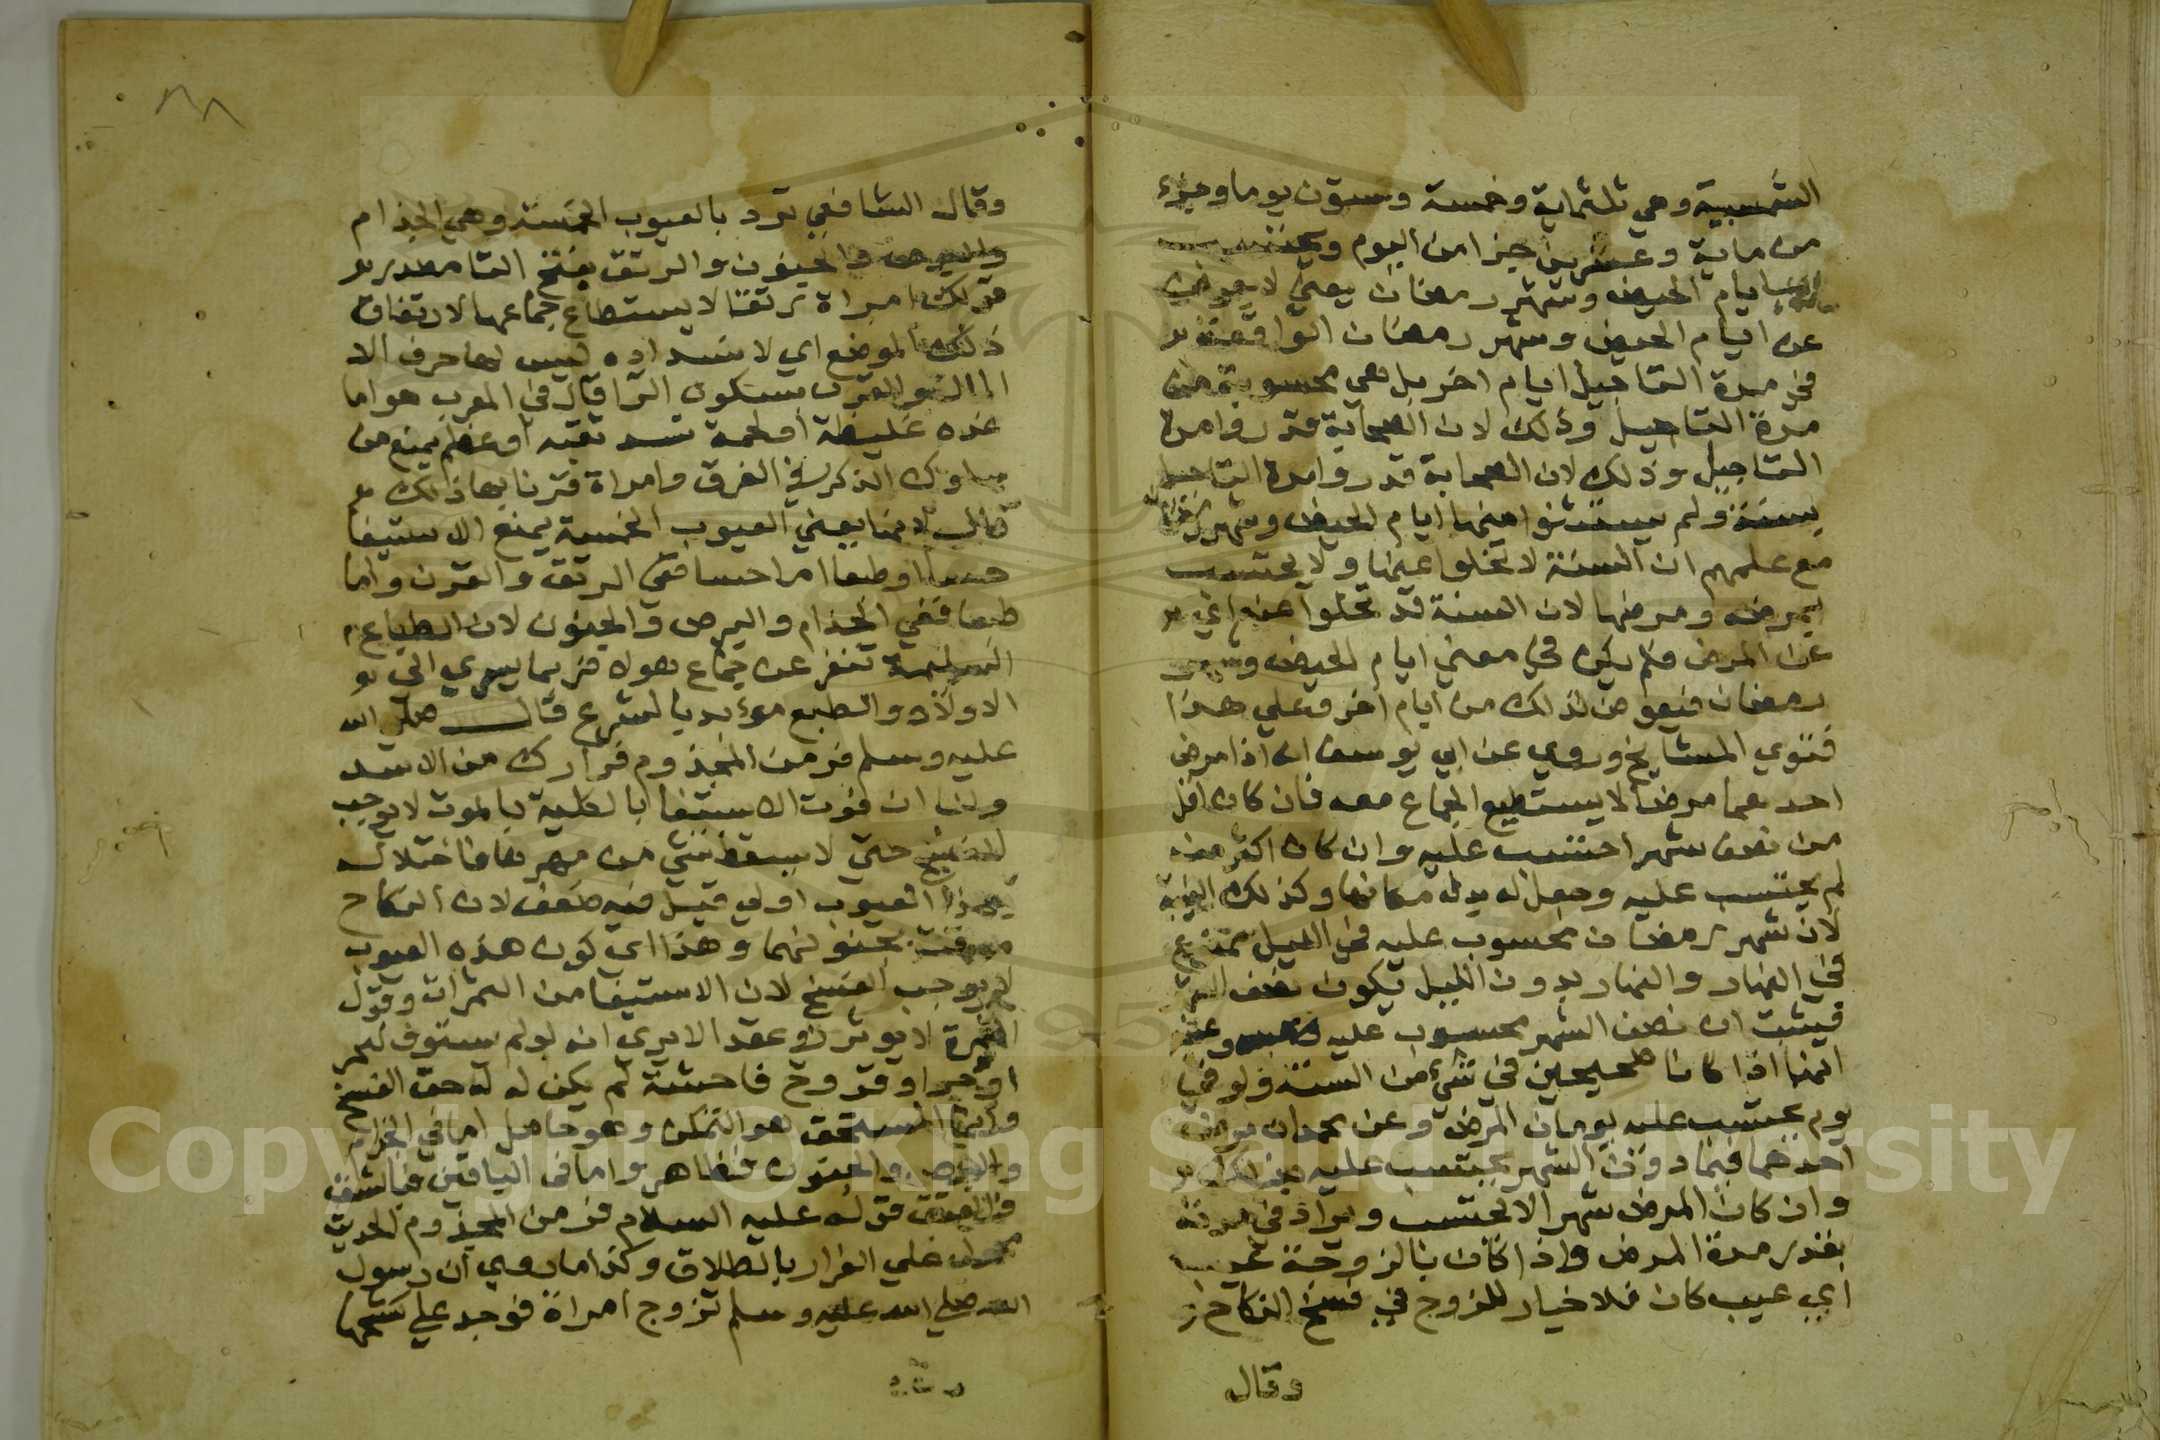 الشمسية وهي ثلثماية وخمسة وستون يوما وجزء
من ماية وعشرين جزا من اليوم ويحتسب
ايام الحيض وشهر رمضان يعني لا يعوض
عن ايام الحيض وشهر رمضان الواقعة
في مدة التاجيل ايام اخر بل هي محسوبة من
مدة التاجيل وذلك لان الصحابة قدروا مدة
التاجيل وذلك لان الصحابة قدروا مدة التاجيل
بسنة ولم يستثنوا منها ايام الحيض وشهر رمضان
مع علمهم ان السنة لا تخلوا عنها ولا يحتسب
بمرضه ومرضها لان السنة قد تخلوا عنه اي
عن المرض فلم يكن في معني ايام الحيض وشهر
رمضان فيعوض لذلك من ايام اخر وعلي هذا
فتوي المشايخ وروي عن ابي يوسف انه اذا مرض
احدهما مرضا لا يستطيع الجماع معه فان كان اقل
من نصف شهر احتسب عليه وان كان اكثر منه
لم يحتسب عليه وجعل له بدله مكانها وكذلك الغيبة
لان شهر رمضان محسوب عليه في الليل ممتنع
في النهار والنهار بدون الليل يكون نصف الشهر
فيثبت ان نصف الشهر محسوب عليه وعنه
ايضا اذا كانا صحيحين في شيء من السنة ولو في
يوم يحتسب عليه زمان المرض وعن محمد ان مرض
احدهما فيما دون الشهر يحتسب عليه بذلك
وان كان المرض شهرا لا يحتسب ويزاد في مدته
بقدر مدة المرض واذا كان بالزوجة عيب
اي عيب كان فلا خيار للزوج في فسخ النكاح
وقال
وقال الشافعي ترد بالعيوب الخمسة وهي الجذام
والبرص والجنون والرتق بفتح التا مصدر
قولك امراة رتقا لا يستطاع جماعها لارتتاق
ذلك الموضع اي لانسداده ليس لها خرق الا
المبال والقرن بسكون الرا قال في المغرب هو اما
غدة غليظة او لحمة تسد ثقبه او عظم يمنع من
سلوك الذكر في الفرق وامراة قرنا بها ذلك
قال لانها يعني العيوب الخمسة يمنع الاستيفا
حسا او طبعا اما حسا ففي الرتق والقرن واما
طبعا ففي الجذام والبرص والجنون لان الطباع
السليمة تنفر عن جماع هولا فربما يسري الي
الاولاد والطبع مؤيد بالشرع قال صلي الله
عليه وسلم فر من المجذوم فرارك من الاسد
ولنا ان فوت الاستيفا بالكلية بالموت لا يوجب
الفسخ حتي لا يسقط شي من مهرها فاختلاله
بهذا العيوب اولي قيل فيه ضعف لان النكاح
موقت بحيوتهما وهذا اي كون هذه العيوب
لم يوجب الفسخ لان الاستيفا من الثمرات وفوت
الثمرة لا يوثر في عقد الا يري انه لو لم يستوف لبخر
او ذفر او قروح فاحشة لم يكن له حق الفسخ
وانما المستحق هو التمكن وهو حاصل اما في الجذام
والبرص والجنون فظاهر واما في الباقين فبالشق
والفتق قوله عليه السلام فر من المجذوم الحديث
محمول علي الفرار بالطلاق وكذا ما روي ان رسول
الله صلي الله عليه وسلم تزوج امراة فوجد علي كشحها